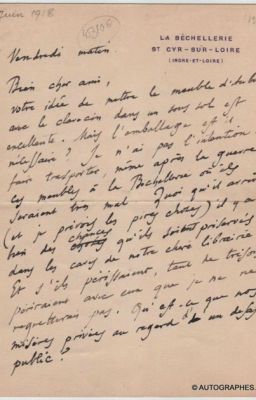 Juin 1918
LA BÉCHELLERIE
ST CYR-SUR-LOIRE
(INDRE-ET-LOIRE)
Vendredi matin.
Bien cher ami,
votre idée de mettre le meuble
avec le clavecin dans un sous sol est
excellente. Mais l'emballage est-il
nécessaire? Je n'ai pas l'intention de
faire trasporter, même après la guerre
ces meubles à la Béchellerie où ils
seraient très mal. Quoi qu'il arrive
(et je prévois les pires choses) il y a
bien des chances qu'ils soient préservés
dans les caves de notre chère librairie
Et s'ils périssaient, tant de trésors
périraient avec eux que je ne les
regretterais pas. Qu'est-ce que nos
misères privées au regard d'un
public?
© AUTOGRAPHES.